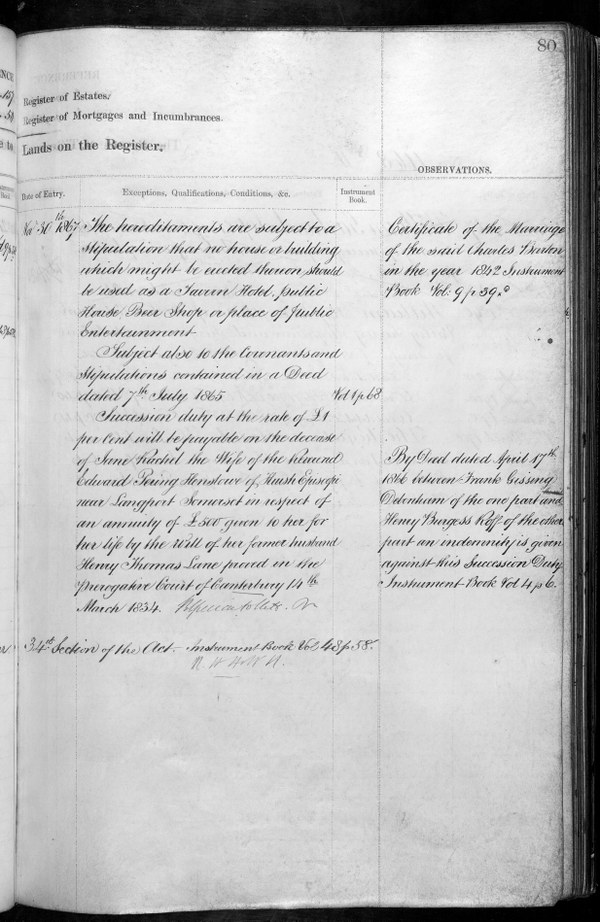 80
Register of Estates.
Register of Mortgages and Incumbrances.
Lands on the Register.
OBSERVATIONS.
Date of Entry.
Exceptions, Qualifications, Conditions, &c.
Instrument Book.
Nov 30th 1867
The hereditaments are subject to a
Stipulation that no house or building
which might be erected thereon should
be used as a Tavern Hotel, public
House Beer Shop or place of Public
Entertainment
Subject also to the Covenants and
Stipulations contained in a Deed
dated 7th July 1865
Vol 1 p 68
Succession duty at the rate of £1
per Cent will be payable on the decease
of Jane Rachel the Wife of the Revund
Edward Pering Henslowe of Huish Episcopi
near Langport Somerset in respect of
an annuity of £500 given to her for
her life by the Will of her former husband
Henry Thomas Lane proved in the
Prerogative Court of Canterbury 14th
March 1834.
34th Section of the Act - Instrument Book Vol 48 p 58.
Certificate of the Marriage
of the said Charles Burton
in the year 1842 Instrument
Book Vol: 9 p 39.
By Deed dated April 17th
1866 between Frank Gissing
Debenham of the one part and
Henry Burgess Roff of the other
part an indemnity is given
against this Succession Duty
Instrument Book Vol 4 p 6.